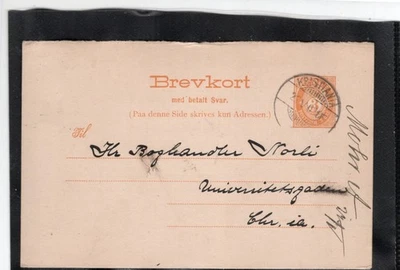 Brevkort
med betalt Svar.
(Paa denne Side skrives kun Adressen.)
KRISTIANIA
Til
Hr Boghandler Norli
Universitetsgaden
Chr. ia.